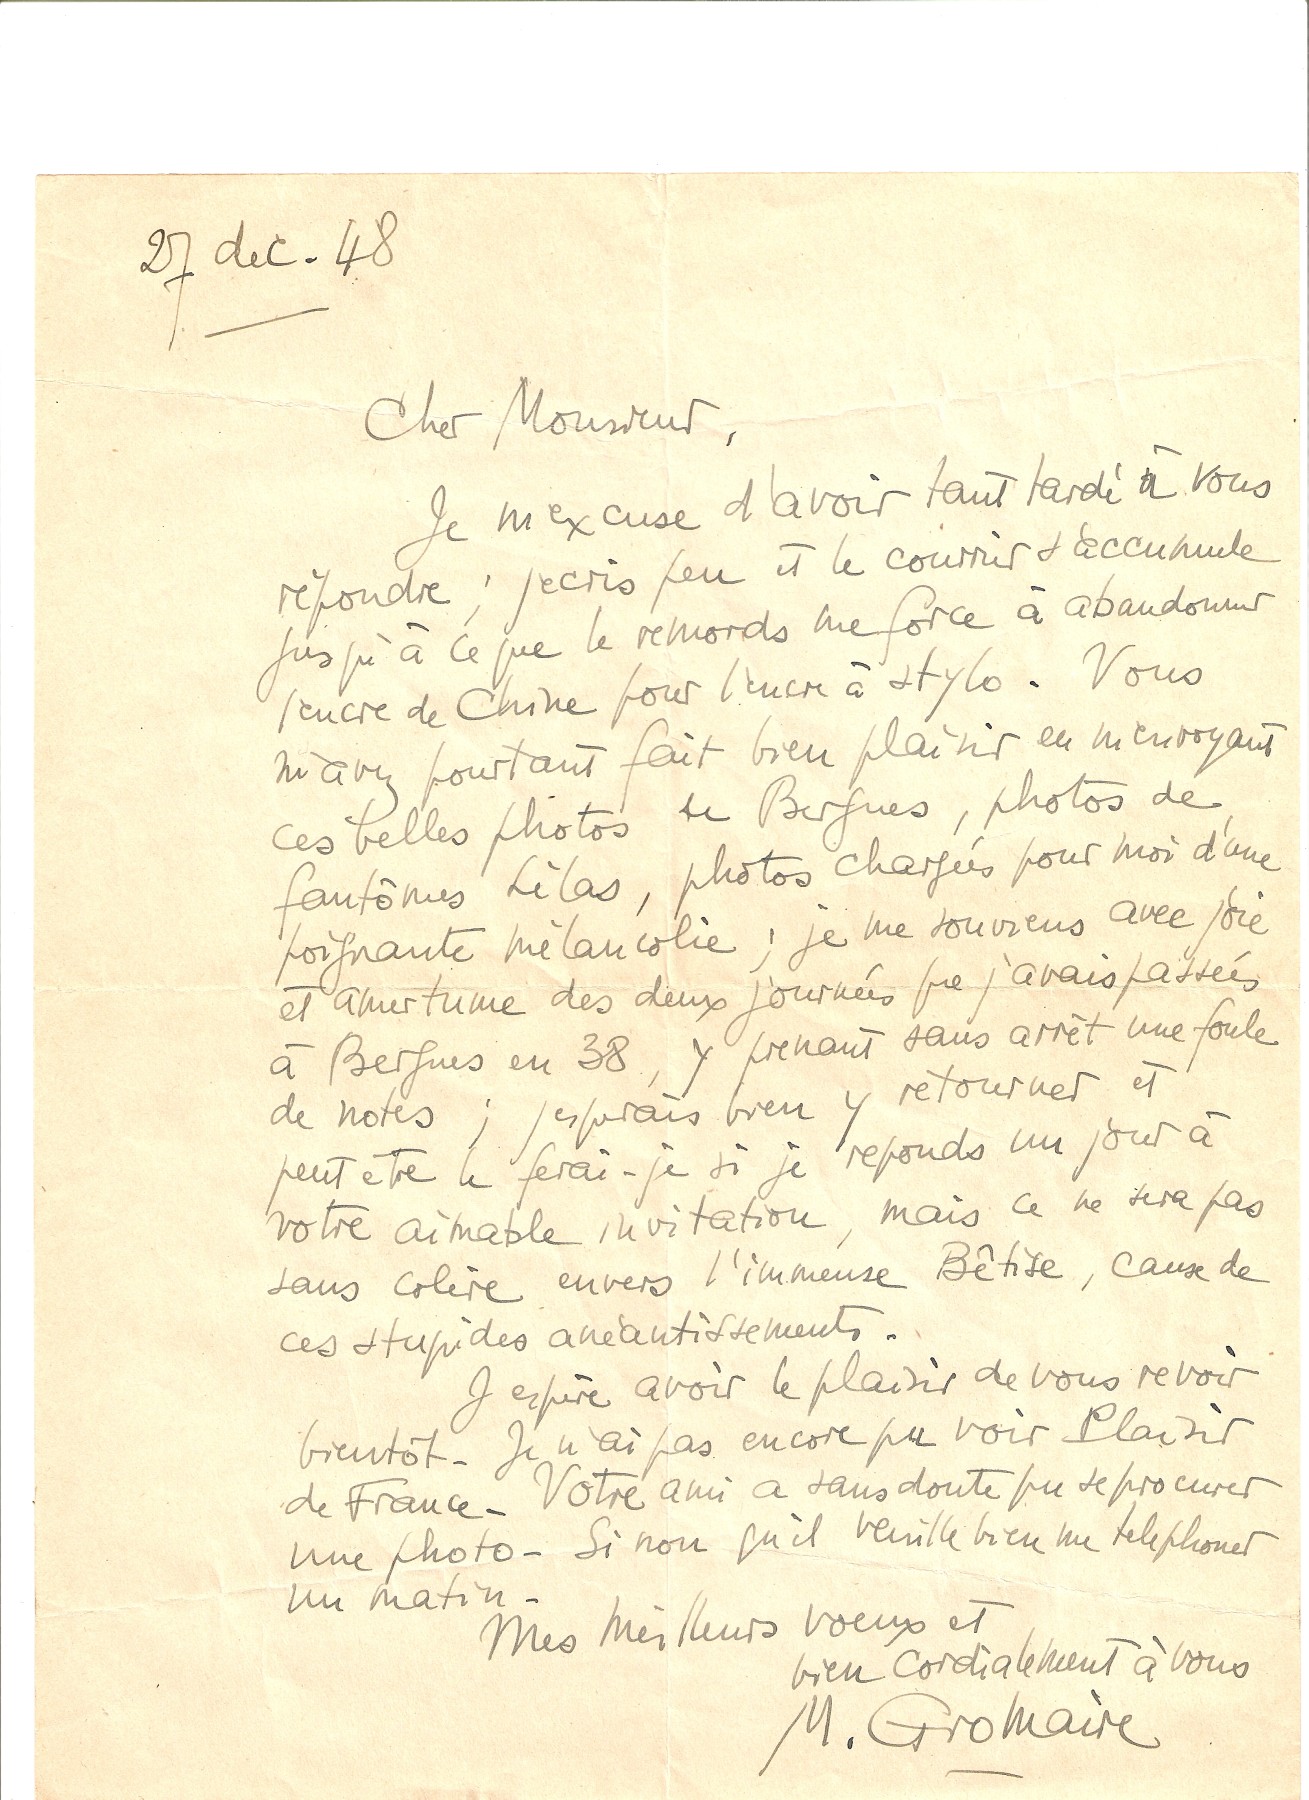 27 dec. 48
Cher Monsieur,
Je m'excuse d'avoir tant tardé à vous
répondre ; j'ecris peu et le courrier s'accumule
jusqu'à ce que le remords me force à abandonner
l'encre de Chine pour l'encre à stylo. Vous
m'avez pourtant fait bien plaisir en m'envoyant
ces belles photos de Bergues, photos de
fantômes hélas, photos chargées pour moi d'une
poignante mélancolie ; je me souviens avec joie
et amertume des deux journées que j'avais passées
à Bergues en 38, y prenant sans arrêt une foule
de notes ; j'esperais bien y retourner et
peut etre le ferai-je si je reponds un jour à
votre aimable invitation, mais ce ne sera pas
sans colère envers l'immense Bêtise, cause de
ces stupides anéantissements.
J'espère avoir le plaisir de vous revoir
bientôt - Je n'ai pas encore pu voir Plaisir
de France - Votre ami a sans doute pu se procurer
une photo - Si non qu'il veuille bien me telephoner
un matin -
Mes meilleurs voeux et
bien cordialement à vous
M. Gromaire